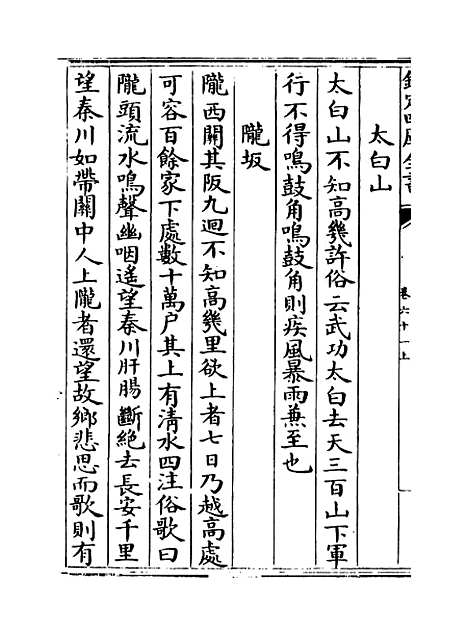 欽定四庫全書
卷六十一上
太白山
太白山不知高幾許俗云武功太白去天三百山下軍
行不得鳴鼓角鳴鼓角則疾風暴雨兼至也
隴坂
隴西關其阪九迴不知高幾里欲上者七日乃越高處
可容百餘家下處數十萬户其上有清水四注俗歌曰
隴頭流水鳴聲幽咽遙望秦川肝腸斷絕去長安千里
望秦川如帶關中人上隴者還望故鄉悲思而歌則有